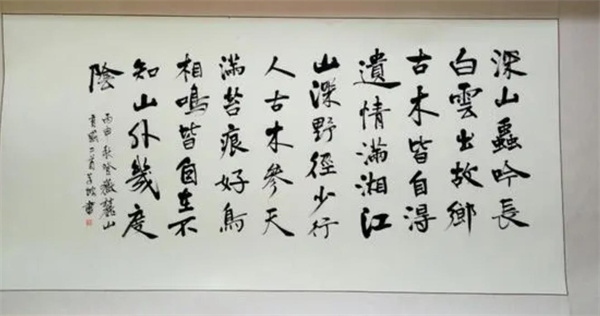 深山蟲吟長
白雲出故鄉
古木皆自得
遺情滿湘江
山深野徑少行
人古木參天
滿苔痕好鳥
相鳴皆自在不
知山外幾度
陰
丙申秋吟嶽麓山
二首書